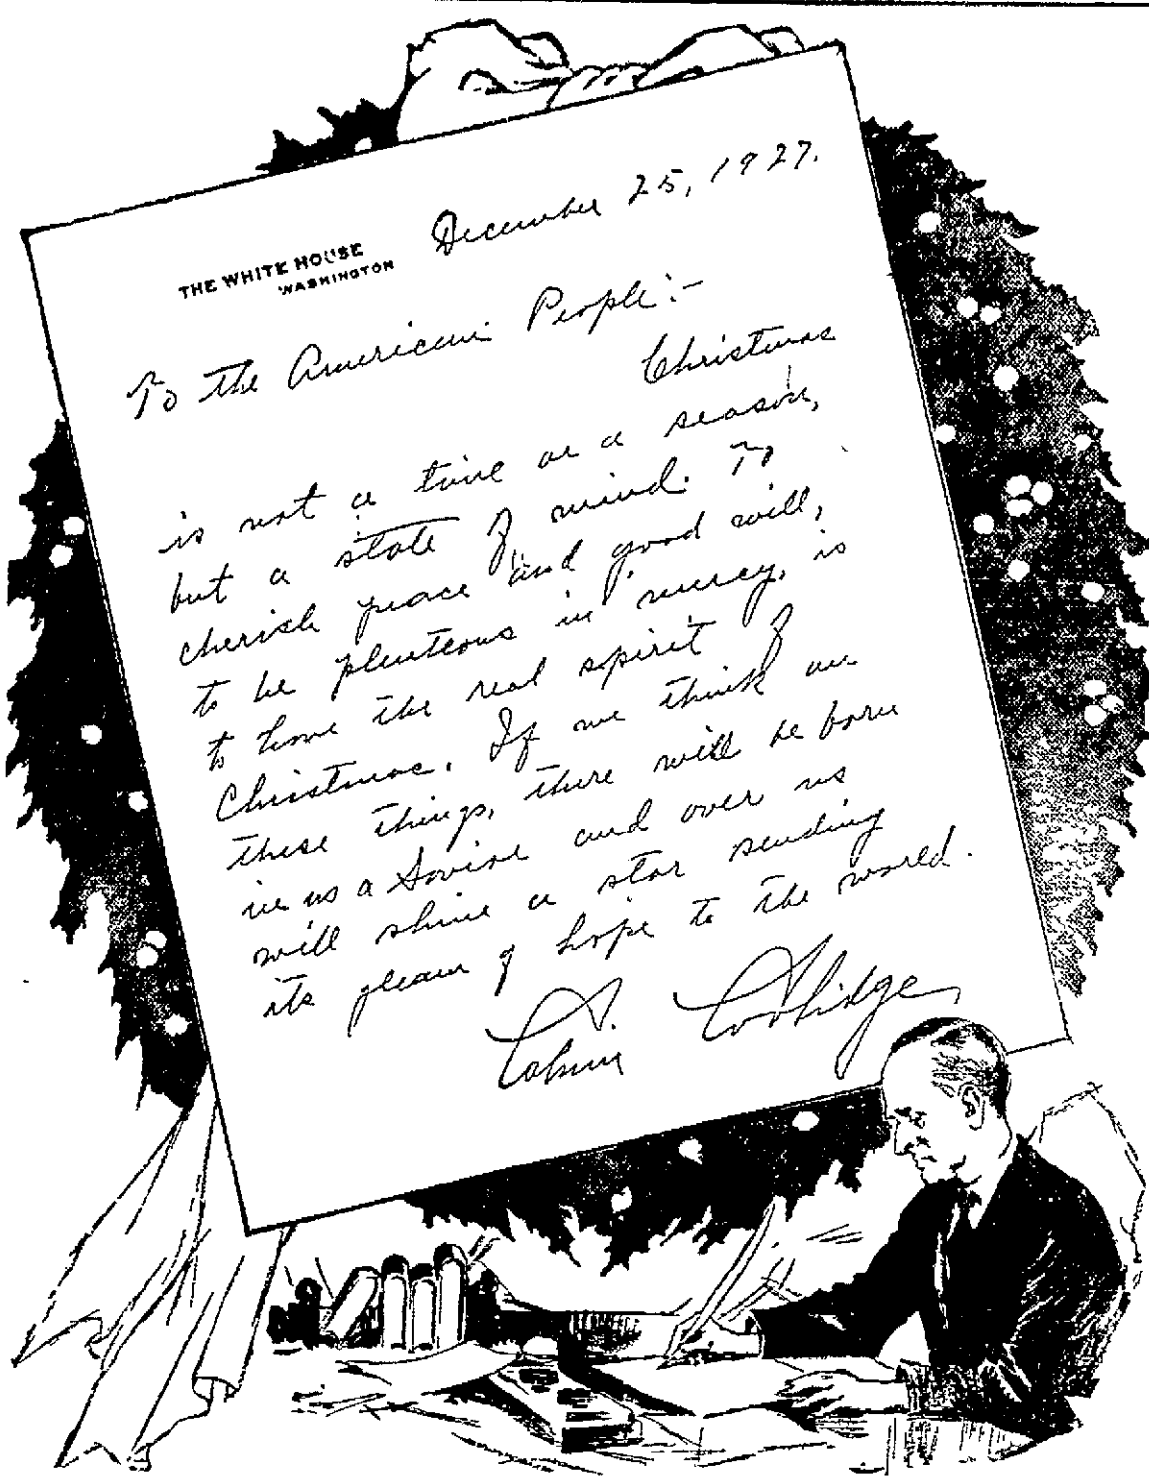 December 25, 1927.
THE WHITE HOUSE
WASHINGTON
To the American People:-
Christmas
is not a time or a season,
but a state of mind. To
cherish peace and good will,
to be plenteous in mercy, is
to have the real spirit of
Christmas. If we think on
these things, there will be born
in us a Savior and over us
will shine a star sending
its gleam of hope to the world.
Calvin Coolidge